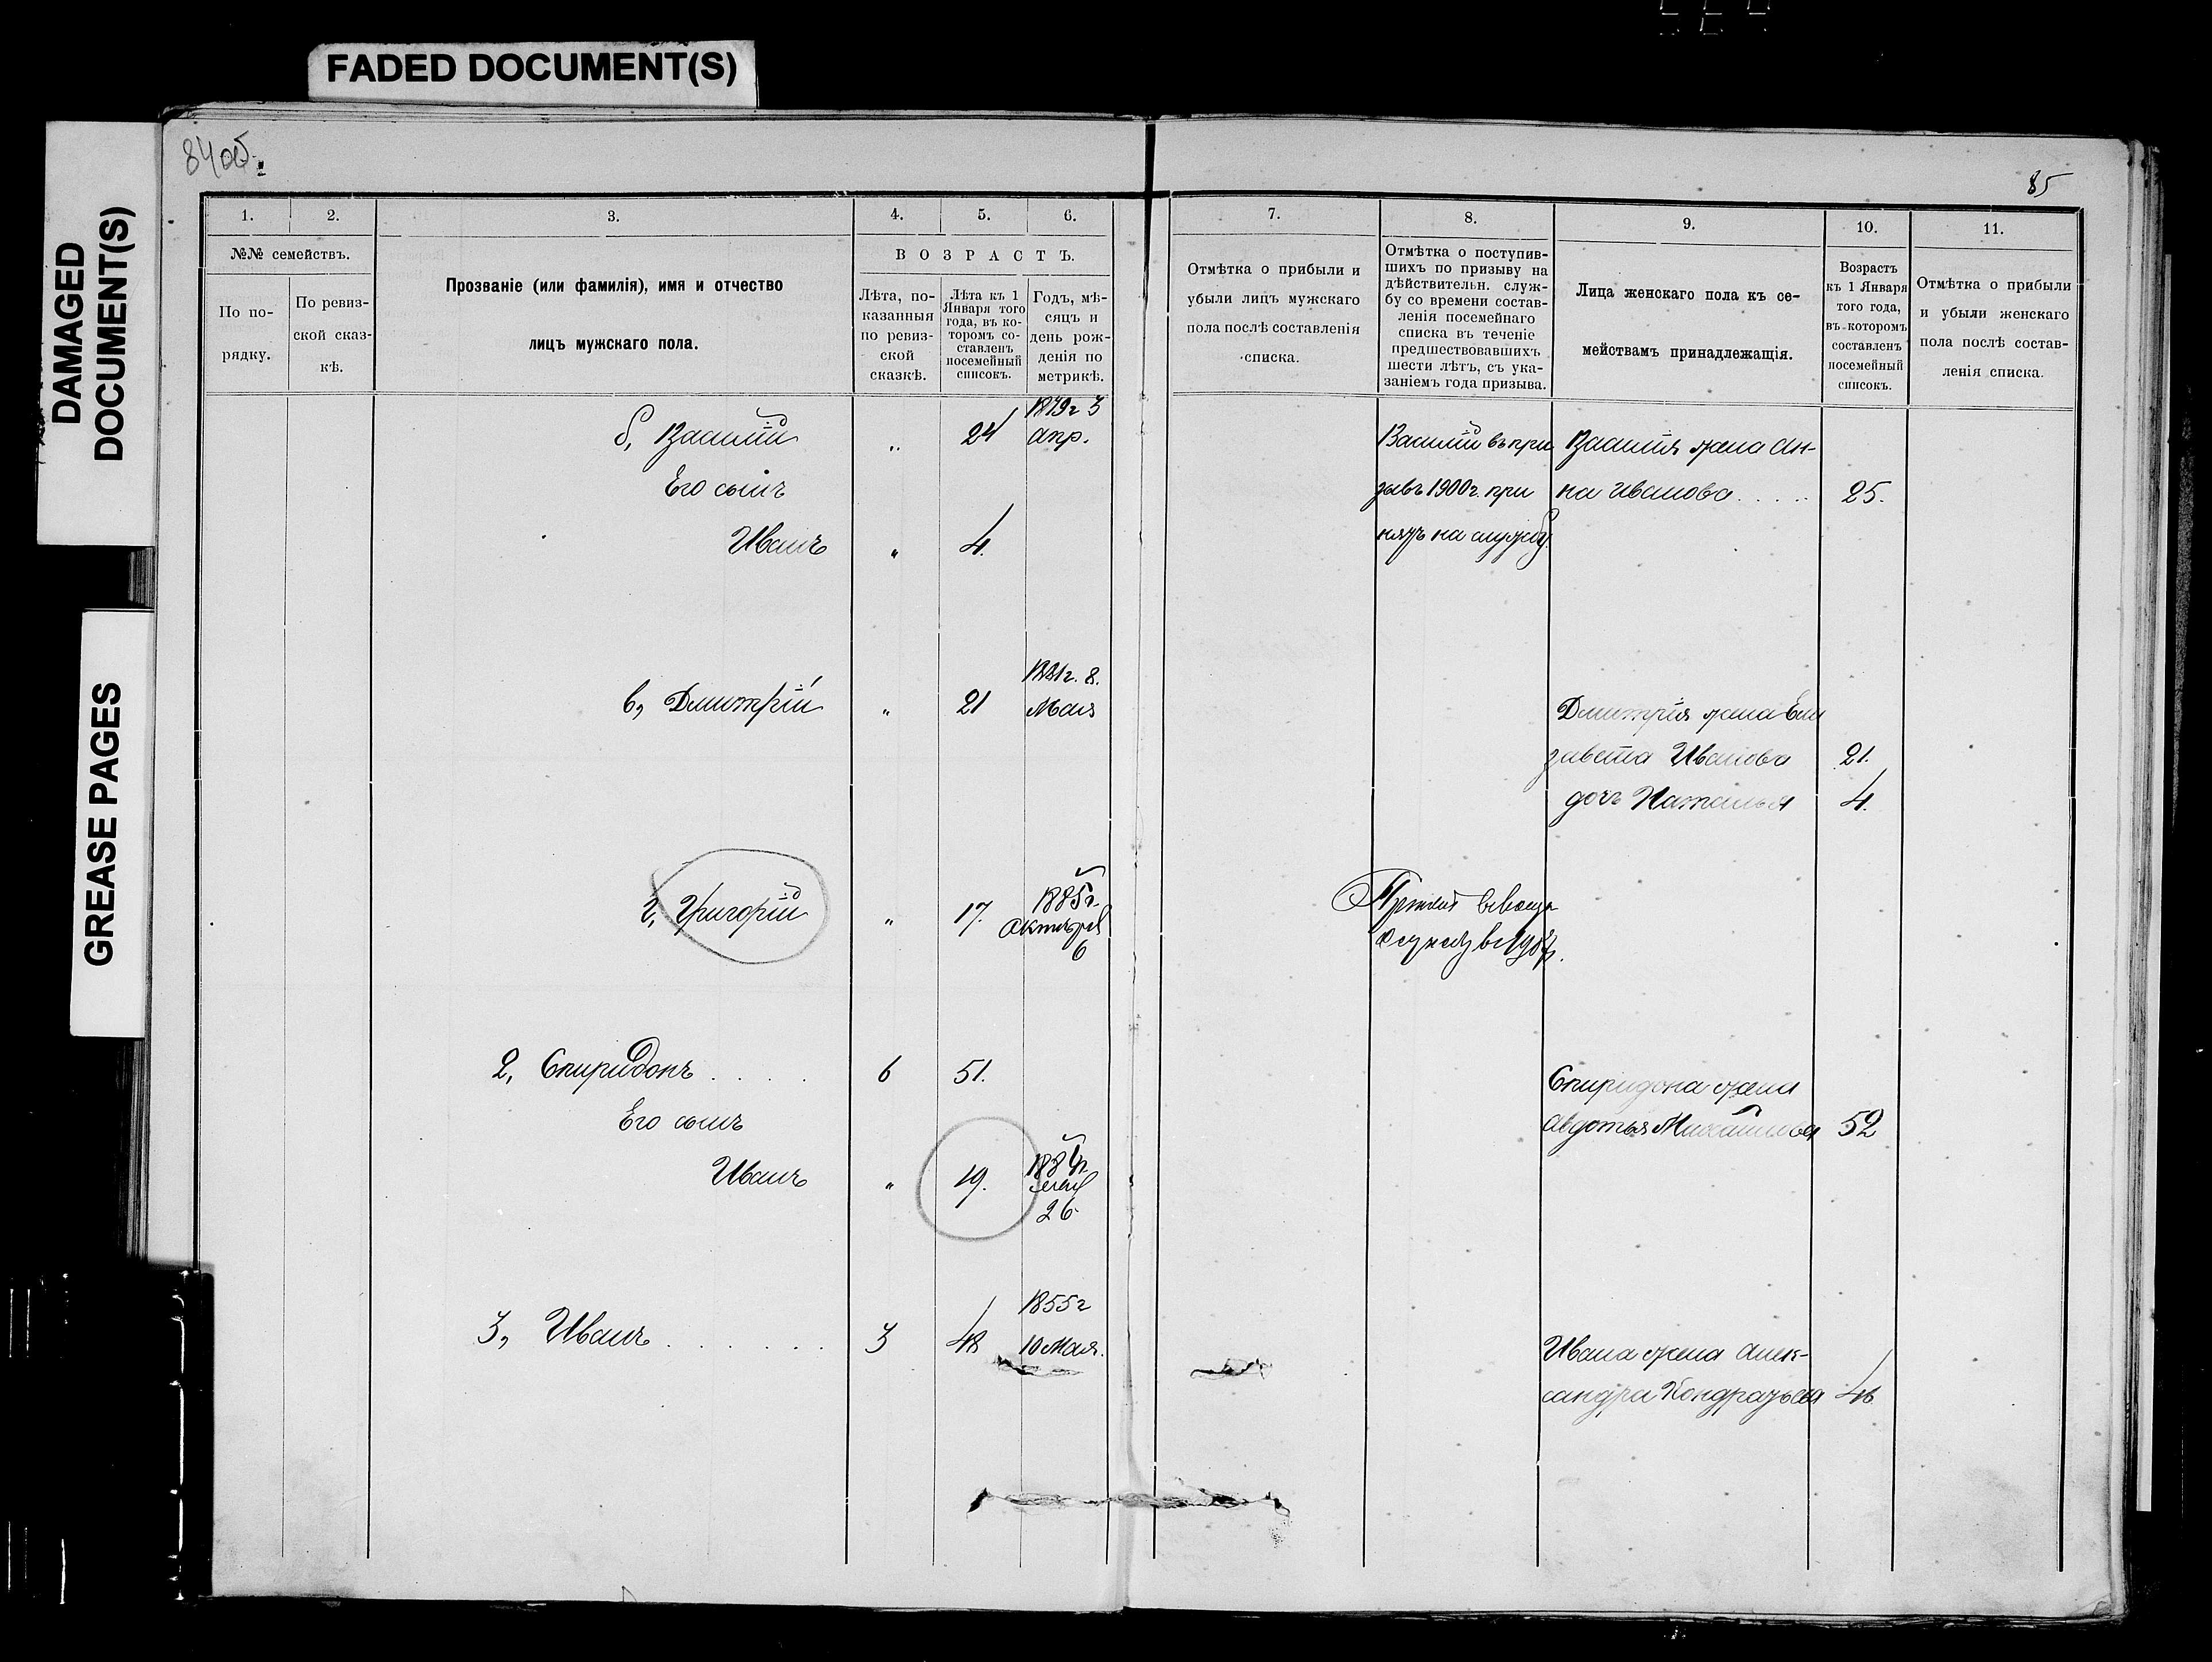 FADED DOCUMENT(S)
DAMAGED
DOCUMENT(S)
GREASE PAGES
84об.
85
1.
2.
3.
4.
5.
6.
№№ семействъ.
По по-
рядку.
По ревиз-
ской сказ-
кѣ.
Прозваніе (или фамилія), имя и отчество
лицъ мужскаго пола.
ВОЗРАСТЪ.
Лѣта, по-
казанныя
по ревиз-
ской
сказкѣ.
Лѣта къ 1
Января того
года, въ ко-
торомъ со-
ставленъ
посемейный
списокъ.
Годъ, мѣ-
сяцъ и
день рож-
денія по
метрикѣ.
7.
8.
9.
10.
11.
Отмѣтка о прибыли и
убыли лицъ мужскаго
пола послѣ составленія
списка.
Отмѣтка о поступив-
шихъ по призыву на
дѣйствительн. служ-
бу со времени состав-
ленія посемейнаго
списка въ теченіе
предшествовавшихъ
шести лѣтъ, съ ука-
заніемъ года призыва.
Лица женскаго пола къ се-
мействамъ принадлежащія.
Возрастъ
къ 1 Января
того года,
въ которомъ
составленъ
посемейный
списокъ.
Отмѣтка о прибыли
и убыли женскаго
пола послѣ состав-
ленія списка.
б, Василій " 24 1879г 3
апр.
Его сынъ
Иванъ " 4.
Василій въ при
зывъ 1900г. при
нятъ на службу.
Василія жена Ан-
на Иванова..... 25.
в, Дмитрій " 21 1881г. 8.
Мая
Дмитрія жена Ели
завета Иванова 21.
дочь Наталья 4.
г, Григорій " 17. 1885г.
Октября
6
2, Спиридонъ.... 6 51.
Его сынъ
Иванъ " 19.
26
Спиридона жена
Авдотья Михайлова 52
3, Иванъ...... 3 48 1855г
10 Мая.
Ивана жена Алек-
сандра Кондратьева